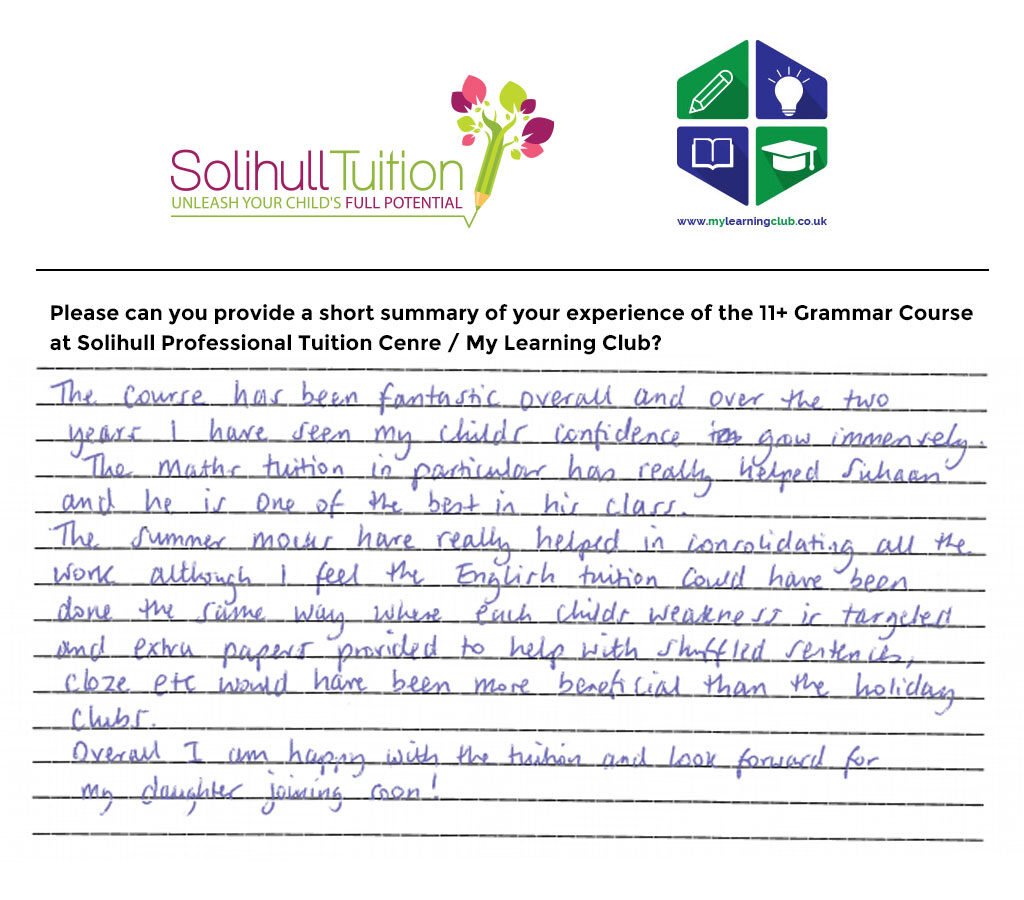 Solihull Tuition
UNLEASH YOUR CHILD'S FULL POTENTIAL
www.mylearningclub.co.uk
Please can you provide a short summary of your experience of the 11+ Grammar Course
at Solihull Professional Tuition Cenre / My Learning Club?
The course has been fantastic overall and over the two
years I have seen my childs confidence grow immensely.
The Maths tuition in particular has really helped Suhaan
and he is one of the best in his class.
The summer mocks have really helped in consolidating all the
work although I feel the English tuition could have been
done the same way where each childs weakness is targeted
and extra papers provided to help with shuffled sentences,
cloze etc would have been more beneficial than the holiday
clubs.
Overall I am happy with the tuition and look forward for
my daughter joining soon!